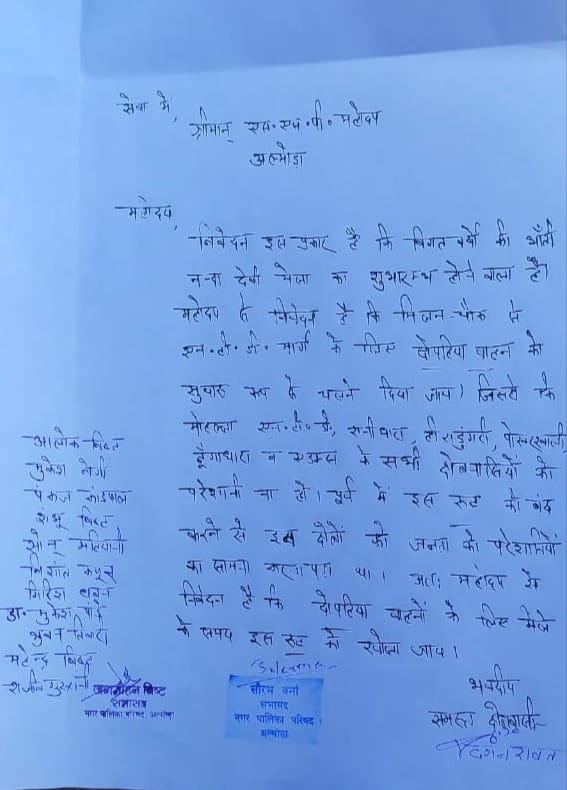 सेवा में,
श्रीमान् एस.एस.पी. महोदय
अल्मोड़ा
महोदय,
निवेदन इस प्रकार है कि विगत वर्षो की भाँती
नन्दा देवी मेला का शुभारम्भ होने वाला है।
महोदय से निवेदन है कि मिलन-चौक से
एन.टी.डी. मार्ग के लिए दोपहिया वाहन को
सुचारू रूप से चलने दिया जाय। जिससे कि
मोहल्ला एन.टी.डी, रानीधारा, हीराडुंगरी, पोखरखाली,
ढूँगाधारा व के सभी क्षेत्रवासियों को
परेशानी ना हो। पूर्व में इस रूट को बंद
करने से इन क्षेत्रों की जनता को परेशानियों
का सामना करना पड़ा था। अतः महोदय से
निवेदन है कि दोपहिया वाहनों के लिए मेले
के समय इस रूट को खोला जाय।
भवदीय
समस्त क्षेत्रवासी
दर्शन रावत
आलोक बिष्ट
मुकेश नेगी
पंकज कांडपाल
शंभू बिष्ट
निशांत कपूर
गिरिश धवन
डा. मुकेश
भुवन तिवारी
महेन्द्र बिष्ट
जगमोहन बिष्ट
सभासद
नगर पालिका परिषद अल्मोड़ा
सौरभ वर्मा
सभासद
नगर पालिका परिषद
अल्मोड़ा